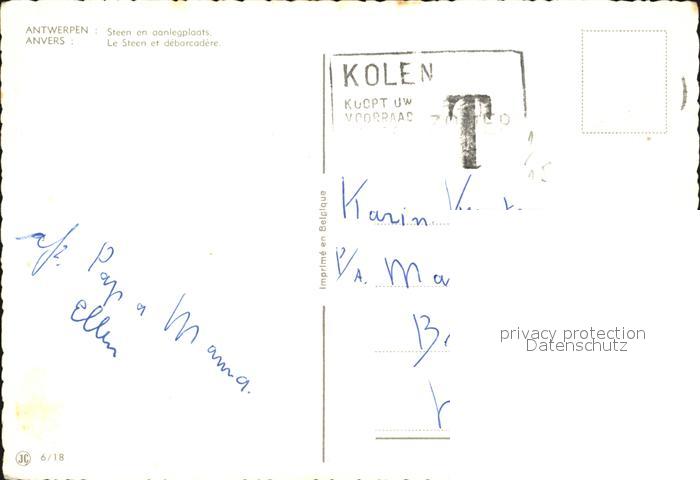 ANTWERPEN : Steen en aanlegplaats.
ANVERS : Le Steen et débarcadère.
KOLEN
KOOPT UW
VOORRAAD
T
Imprimé en Belgique
Karin
P/A. Ma
B
privacy protection
Datenschutz
Pap a Mama.
Ellen
JC 6/18